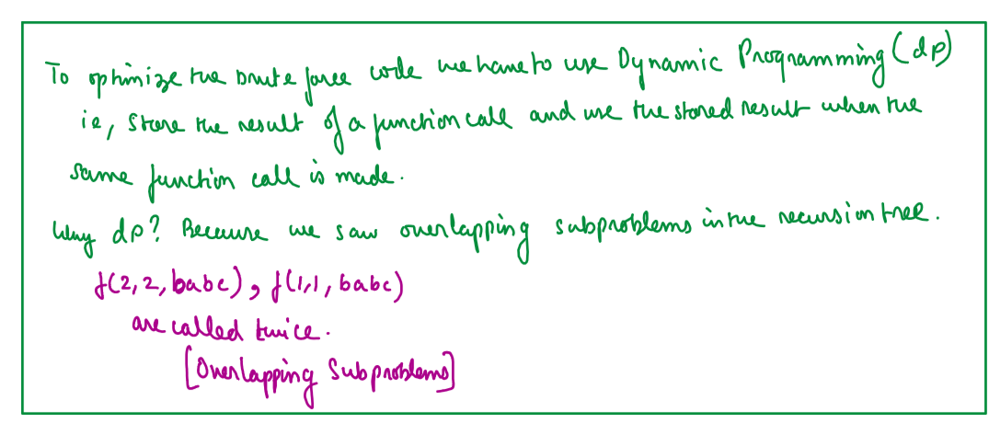 To optimize the brute force code we have to use Dynamic Programming (dp)
ie, Store the result of a function call and use the stored result when the
same function call is made.
Why dp? Because we saw overlapping subproblems in the recursion tree.
f(2,2,babc), f(1,1,babc)
are called twice.
[Overlapping Subproblems]